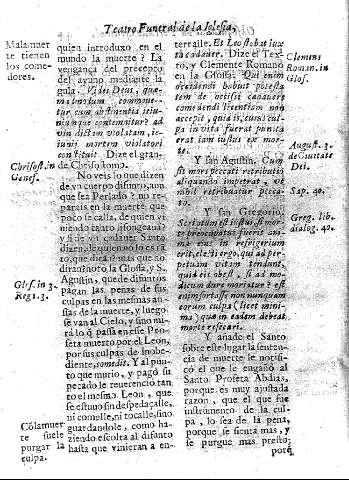 Teatro Funeral de la Iglesia,
Malamuer
te tienen
los come-
dores.
quien introduxo en el
mundo la muerte? La
vengança del precepto
del ayuno mediante la
gula. Vides Deus, que-
madmodum commoue-
tur cum abstinentia ieiu-
niumque contemnitur? ad
vindictam violatam, ie-
iunij mortem violatori
constituit. Dize el gran-
de Chrisostomo.
Chrisost. in
Genes.
No veis lo que dizen
de vn cuerpo difunto, aun
que sea Perlado? no re-
parais en la muerte, que
poco se calla, de quien vi
niendo tanto
y si de vn cadauer Santo
dizen, de quien no lo es ta
to, que dirà? mas que no
diran? nota la Glossa, y S.
Agustin, que los difuntos
pagan las penas de sus
culpas en las mesmas an-
sias de la muerte, y luego
se van al Cielo, y sino mi-
rà lo q̃ passa en este Profe
ta muerto por el Leon,
por sus culpas de inobe-
diente, comedit. Y al pun-
to que murio, y pagò su
pecado le reuerenciò tan
to el mesmo Leon, que
se estuuo sin despedaçalle,
ni comelle, ni tocalle, sino
guardandole, como ha-
ziendo escolta al difunto
hasta que vinieran a en-
Glos. in 3.
Reg. 13.
Cõlamuer
te suele
purgar la
culpa.
terralle. Et Leo stabat iux
ta cadauer. Dize el Tex-
to, y Clemente Romano
en la Glossa: Qui enim
occidendi habuit potesta
tem de ipsius cadauere
comedendi licentiam non
accepit, quia is, cuius cul-
pa in vita fuerat punita
erat iam iustus ex mor-
te.
Clemens
Roman. in
Glos.
Y san Agustin. Cum
sit mors peccati retributio
aliquando impetrat, vt
nihil retribuatur pecca-
to.
August. 3.
de Ciuitate
Dei.
Sap. 40.
Y san Gregorio.
Scriptum est iustus, si mor-
te fuerit ani-
ma eius in refrigerium
erit, electi ergo, qui ad per-
petuam vitam tendunt,
quid eis obest, si ad mo-
dicum dure moriatur? est
enim fortasse non nunquam
eorum culpa (licet mini-
ma) qua in eadem debeat
morte resecari.
Greg. lib.
dialog. 40.
Y añade el Santo
sobre este lugar la senten-
cia de muerte le notifi-
có el que le engañò al
Santo Profeta Abdias,
porque es muy ajustada
razon, que el que fue
instrumento de la cul-
pa, lo sea de la pena,
porque se sienta mas, y
se purgue mas presto;
porq̃